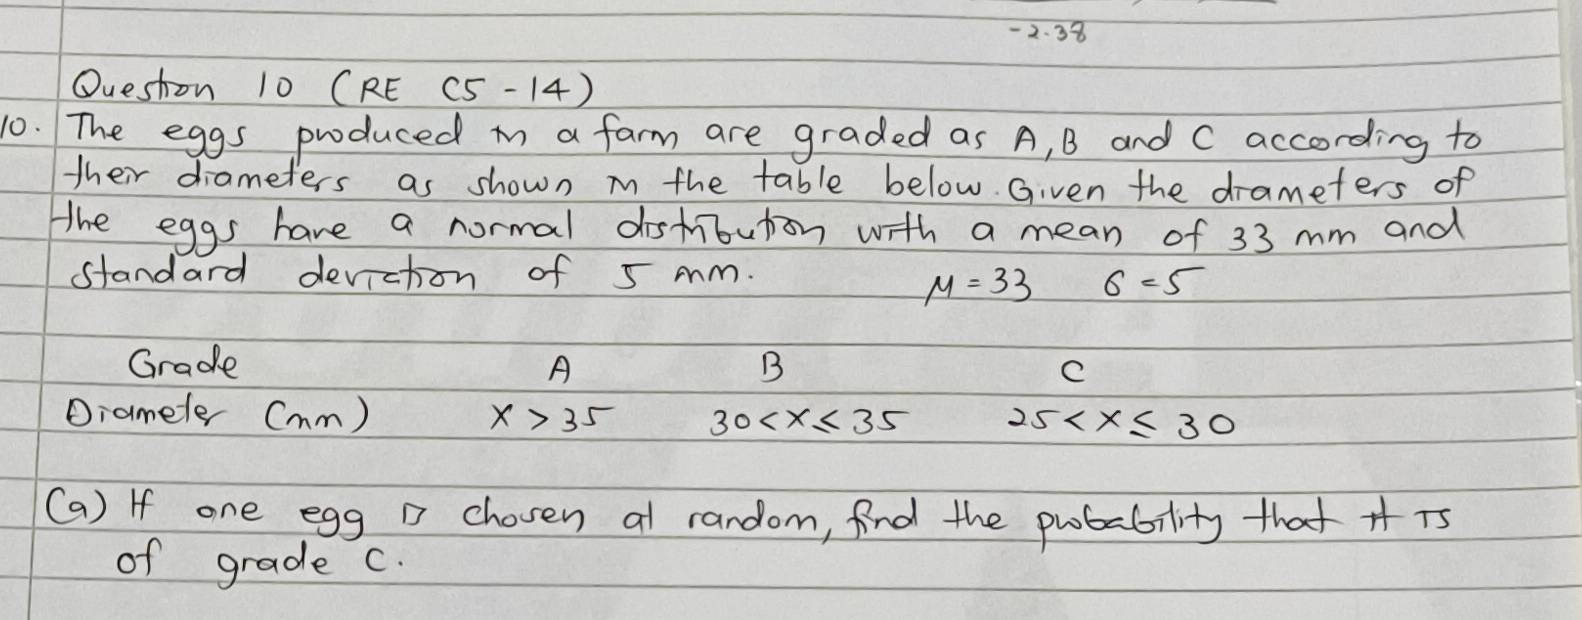 -2.38
Question 10 (RE C5-14)
10. The eggs produced in a farm are graded as A, B and C according to
their diameters as shown in the table below. Given the diameters of
the eggs have a normal distribution with a mean of 33 mm and
standard deviation of 5 mm. μ = 33 σ = 5
Grade A B C
Diameter (mm) X > 35 30 < X ≤ 35 25 < X ≤ 30
(a) If one egg is chosen at random, find the probability that it is
of grade C.